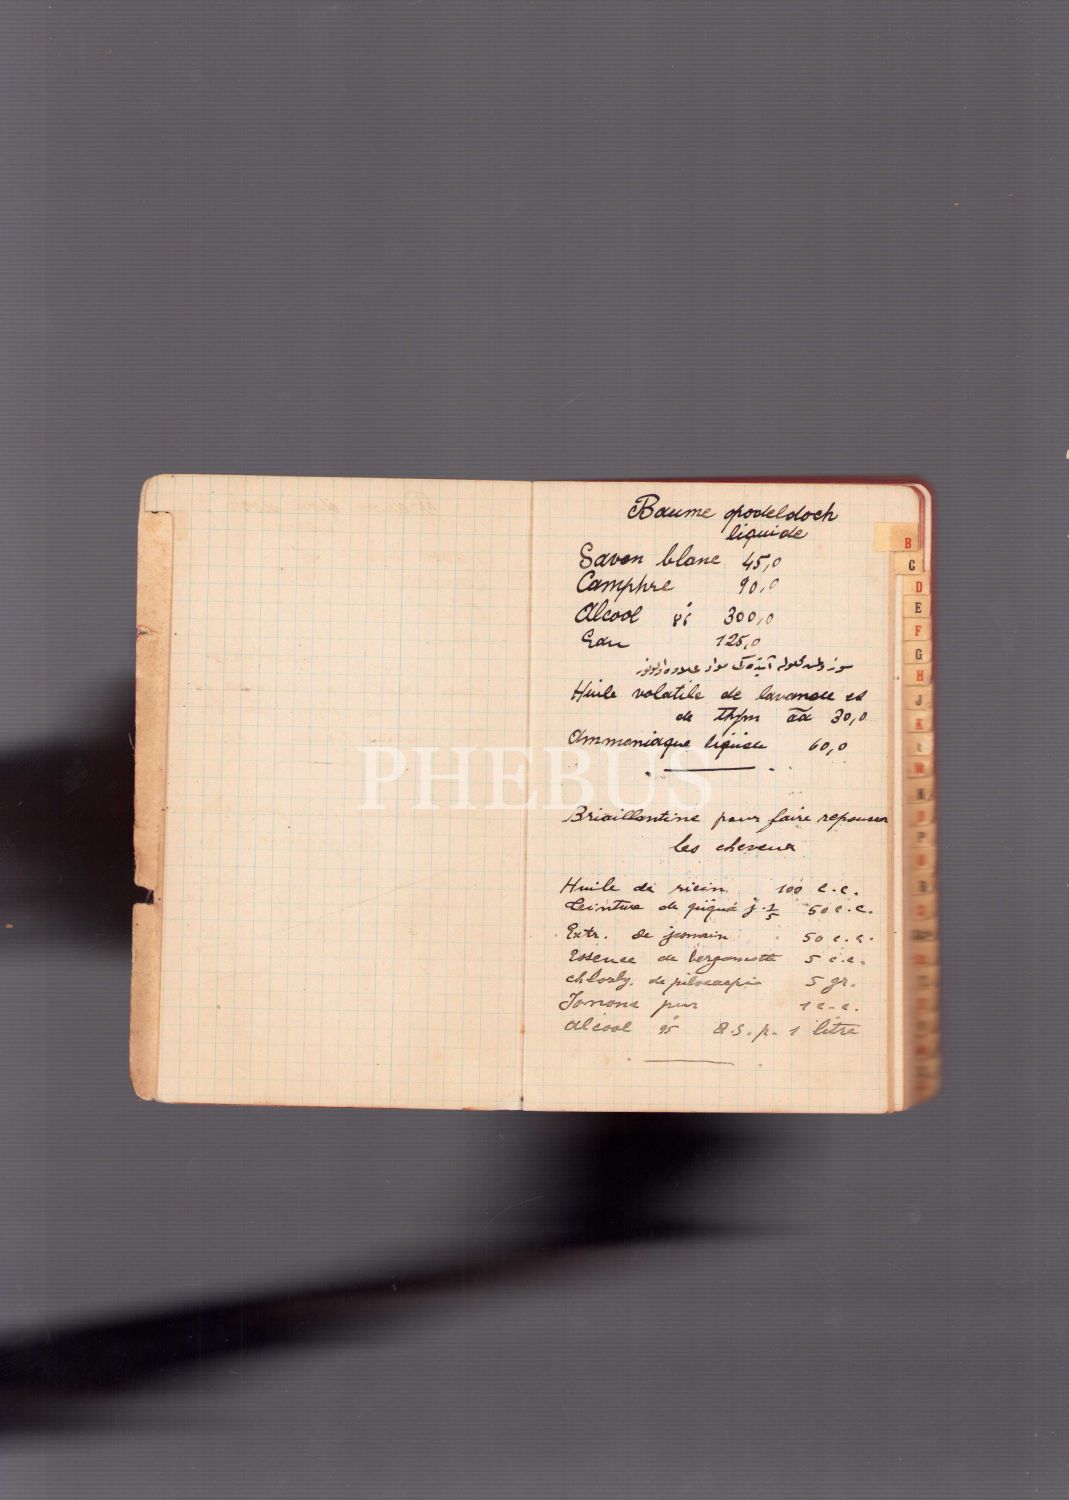 Baume opodeldoch
liquide
Savon blanc 45,0
Camphre 90,0
Alcool 300,0
Eau 125,0
Huile volatile de lavande et
de thym āā 30,0
Ammoniaque liquide 60,0
PHEBUS
Briaillantine pour faire repousser
les cheveux
Huile de ricin 100 c.c.
Teinture de 1/5 50 c.c.
Extr. de jasmin 50 c.c.
Essence de bergamotte 5 c.c.
chlorhy. de pilocarpi 5 gr.
Ionone pur 1 c.c.
Alcool 95° Q.S.p. 1 litre
B
C
D
E
F
G
H
J
K
M
N
P